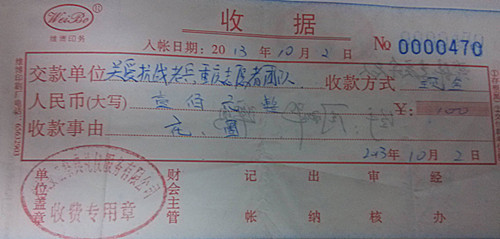 WeiBo
维博印务
收 据
入帐日期：2013年10月2日
No 0000470
交款单位 关爱抗战老兵重庆志愿者团队 收款方式 现金
人民币(大写) 壹佰元整 ￥：100
收款事由 花圈
2013年10月2日
单位盖章 财会主管 记帐 出纳 审核 经办
收费专用章